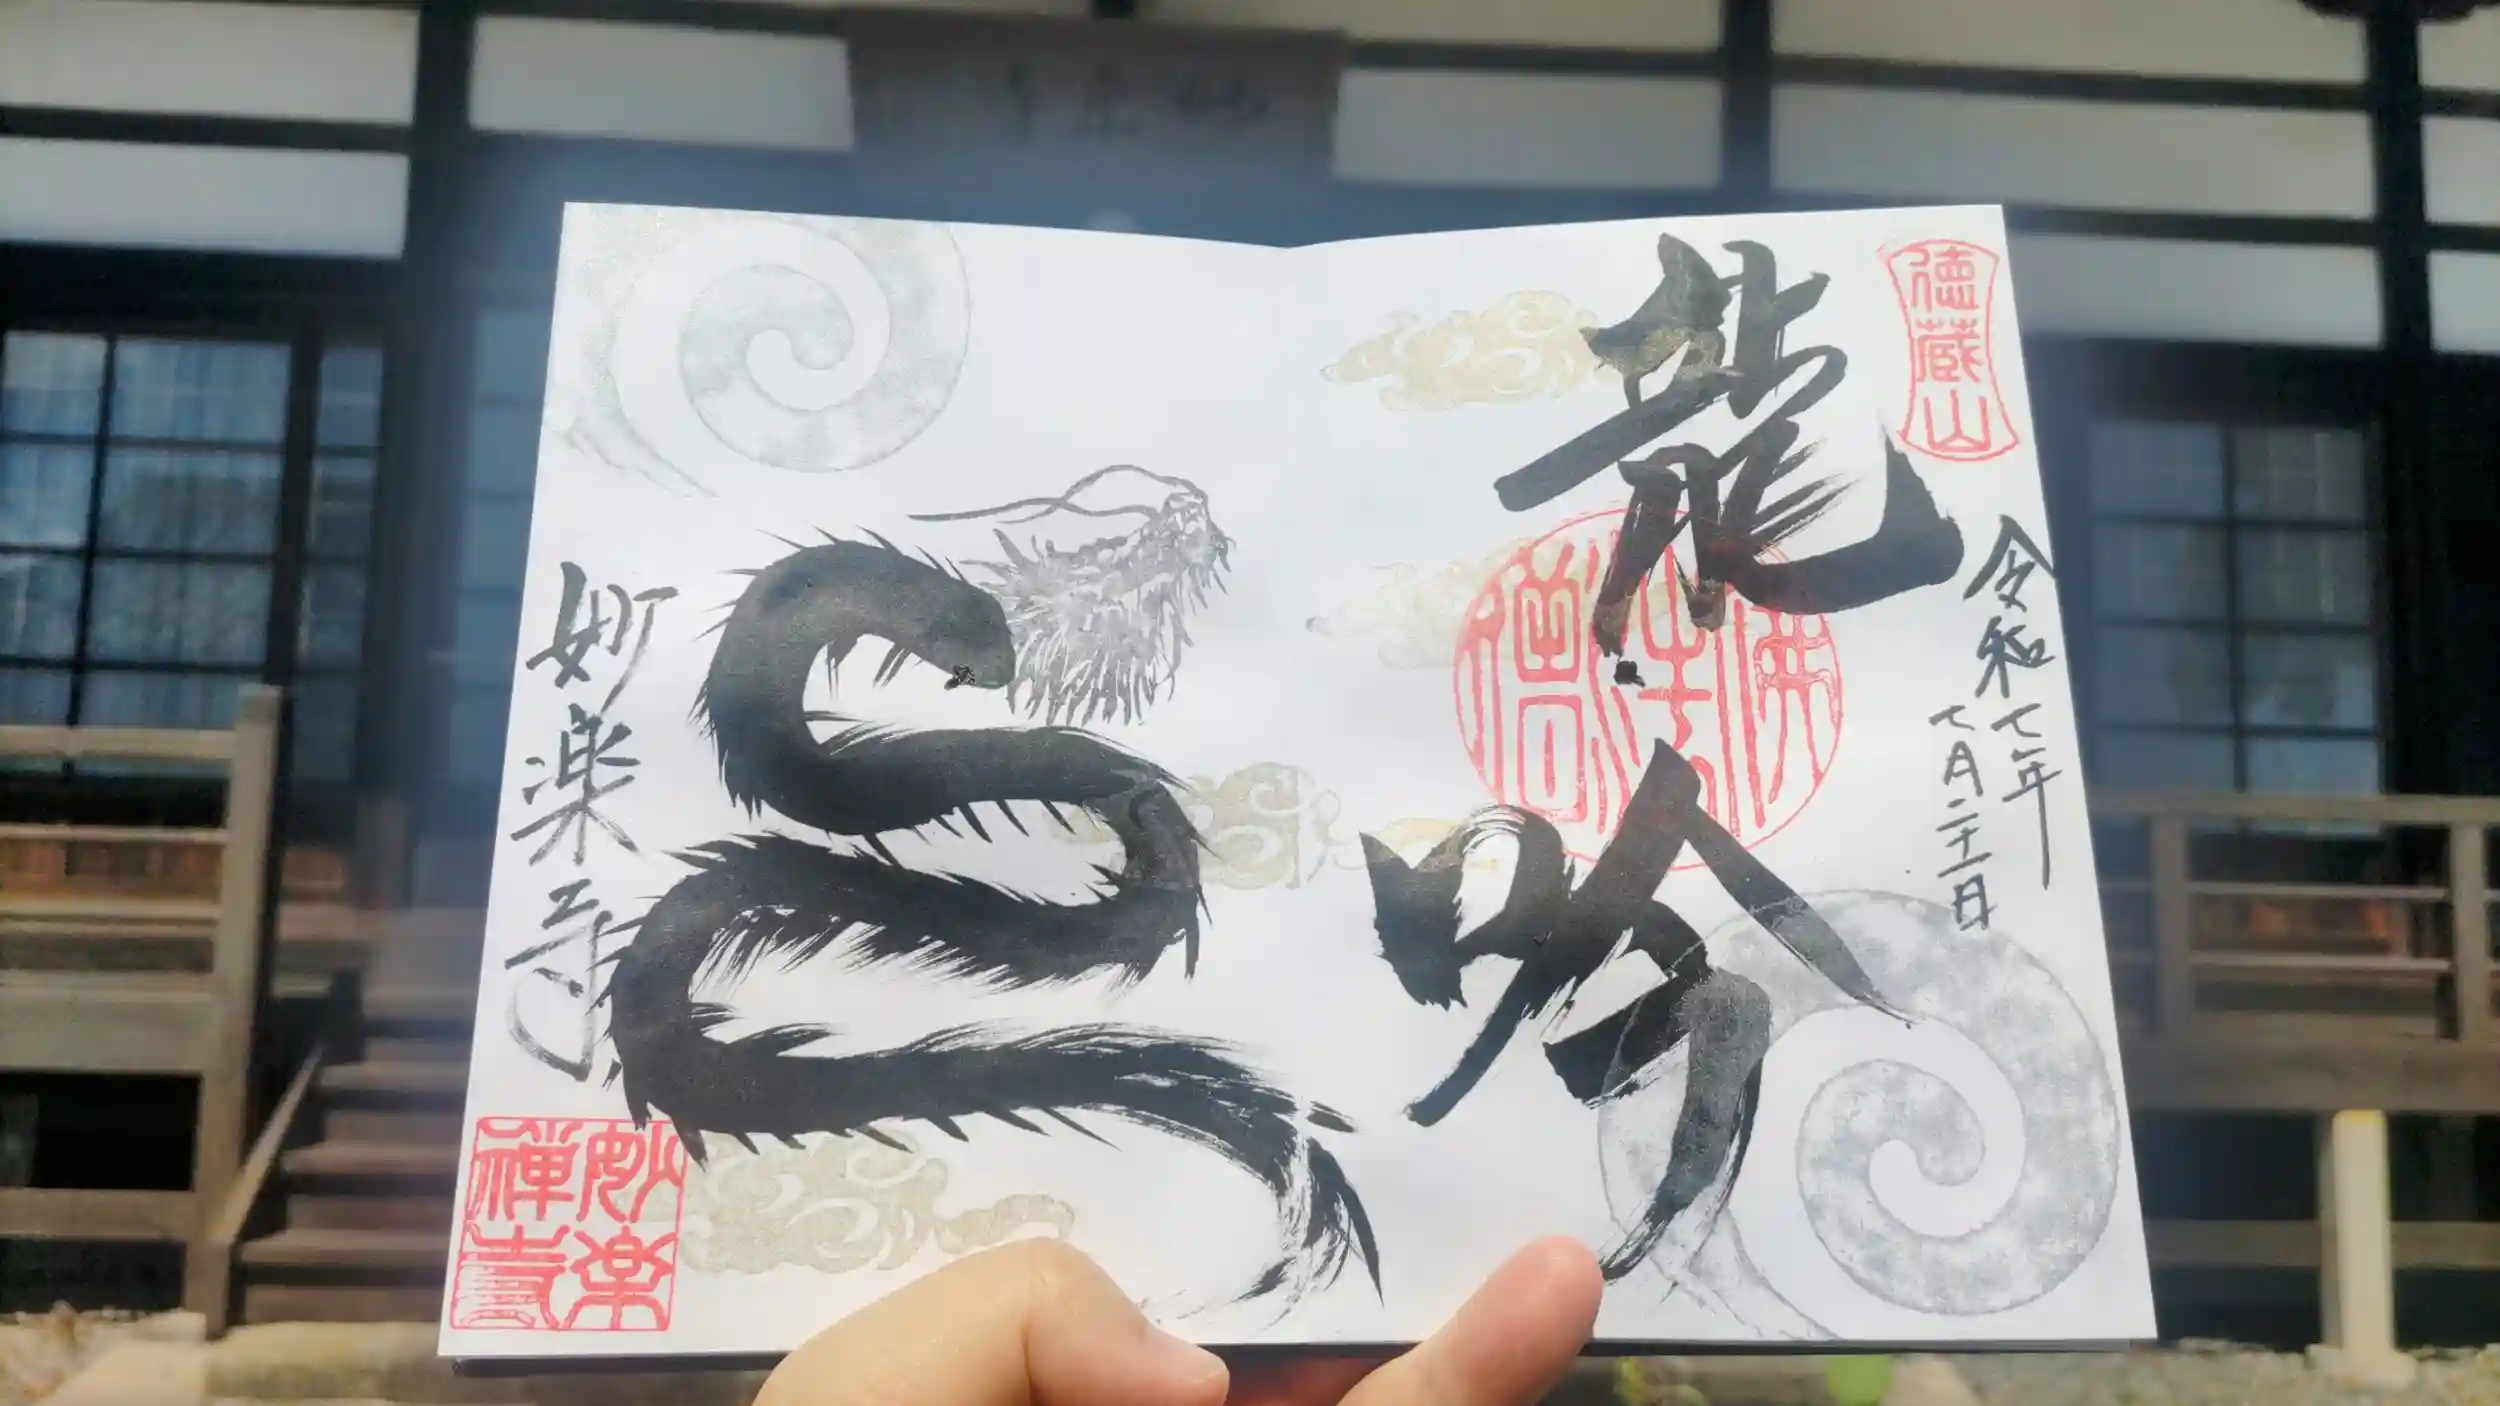 徳蔵山
龍吟
佛法僧
令和七年
七月二十一日
妙楽寺
妙楽
禅寺